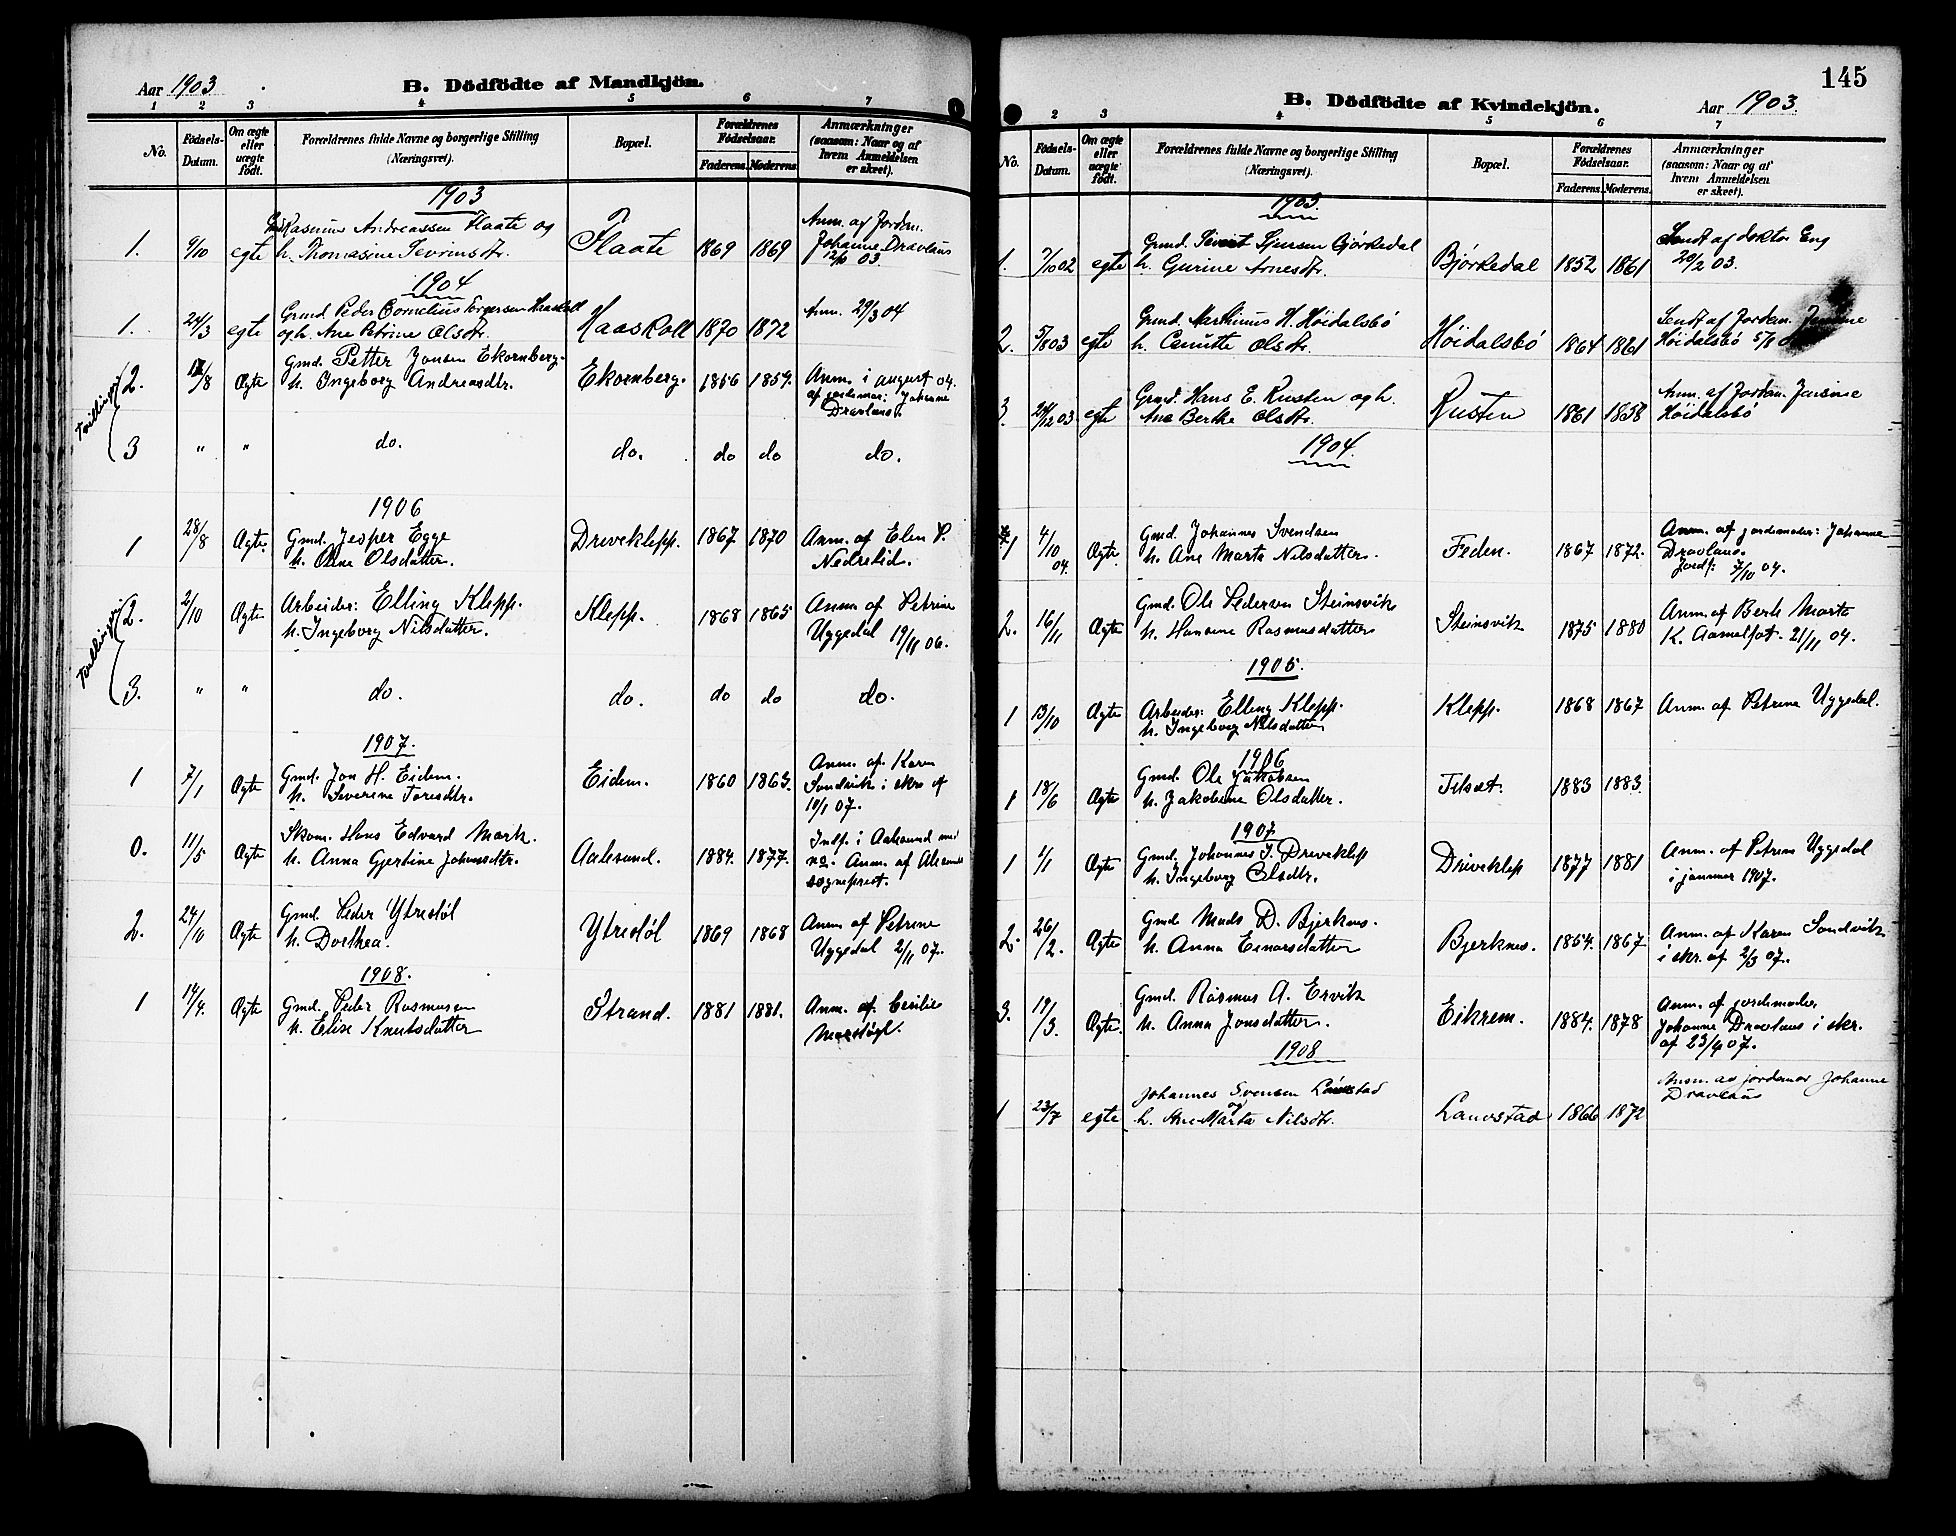 Aar 1903
B. Dödfödte af Mandkjön.
1 2 3 4 5 6 7
No.
Födsels-Datum.
Om ægte eller uægte födt.
Forældrenes fulde Navne og borgerlige Stilling (Næringsvei).
Bopæl.
Forældrenes Födselsaar.
Faderens. Moderens.
Anmærkninger (saasom: Naar og af hvem Anmeldelsen er skeet).
1903
Rasmus Andreassen Flaate og
1. 9/10 egte h. Thomasine Severinsdtr. Flaate 1869 1869 Anm. af Jordm.
Johanne Dravlaus
12/10 03.
1904
Grmd. Peder Cornelius
1. 24/3 egte og h. Ane Petrine Olsdtr. Haaskoll 1870 1872 Anm. 29/3 04
Tvillinger
Gmd. Petter Jonsen Ekornberg.
2. /8 Ægte h. Ingeborg Andreasdtr. Ekornberg. 1856 1859. Anm. i august 04.
af jordemor: Johanne
Dravlaus.
3 " " do. do. do do do.
1906
1 28/8 Ægte. Gmd. Jesper Egge
h. Oline Olsdatter. Driveklepp. 1867 1870 Anm. af Elen P.
Nedrelid.
Tvillinger
2. 2/10 Ægte Arbeider: Elling Klepp.
h. Ingeborg Nilsdatter. Klepp. 1868 1865 Anm. af Petrine
Uggedal 19/11 06.
3. " " do. do. do do do.
1907.
1 7/1 Ægte Gmd. Jon H. Eidem.
h. Severine Toresdtr. Eidem. 1860 1863. Anm. af Karen
Sandvik i skr. af
10/1 07.
0. 11/5 Ægte Skom. Hans Edvard Mork.
h. Anna Gjertine Johansdtr. Aalesund. 1884. 1877. Indf. i Aalesund med
no. Anm. af Alesunds
sogneprest.
2. 24/10 Ægte Gmd. Peder Ytrestöl
h. Dorthea. Ytrestöl 1869 1868 Anm. af Petrine
Uggedal 2/11 07.
1908.
1 14/4. Ægte Gmd. Peder Rasmussen
h. Elise Knutsdatter Strand. 1881 1881. Anm. af Cecilie
145
B. Dödfödte af Kvindekjön.
Aar 1903.
2 3 4 5 6 7
No.
Födsels-Datum.
Om ægte eller uægte födt.
Forældrenes fulde Navne og borgerlige Stilling (Næringsvei).
Bopæl.
Forældrenes Födselsaar.
Faderens. Moderens.
Anmærkninger (saasom: Naar og af hvem Anmeldelsen er skeet).
1903
Grmd. Sivert Bjørkedal
1. 7/10 02 egte h. Gurine Arnesdtr. Bjørkedal 1852 1861 Sendt af doktor Eng
20/2 03.
Grmd. Marthinus H. Höidalsbö
2. 5/8 03 egte h. Olsdtr. Höidalsbö 1864 1861 Sendt af Jordm. Jensine
Höidalsbö 5/8
Grmd. Hans E. Rusten og h.
3. 24/12 03 egte Ane Berthe Olsdtr. Rusten 1861 1858 Anm. af Jordm. Jensine
Höidalsbö
1904.
1 4/10 04. Ægte. Gmd. Johannes Svendsen
h. Ane Marta Nilsdatter. Feden. 1867 1872. Anm. af jordemoder: Johanne
Dravlaus.
Jordf: 7/10 04.
2. 16/11 Ægte Gmd. Ole Pedersen Steinsvik
h. Hansine Rasmusdatter Steinsvik 1875 1880 Anm. af Berte Marte
K. Aamelfot. 21/11 04.
1905.
1 13/10 Ægte Arbeider: Elling Klepp.
h. Ingeborg Nilsdatter Klepp. 1868 1867 Anm. af Petrine Uggedal.
1906
1 18/6 Ægte Gmd. Ole Jakobsen
h. Jakobine Olsdatter. Tilset. 1883 1883.
1907
1 1/1 Ægte Gmd. Johannes J. Driveklep
h. Ingeborg Olsdtr. Driveklep 1877 1881 Anm. af Petrine Uggedal
i januar 1907.
2. 26/2. Ægte Gmd. Mads D. Bjerknes.
h. Anna Einarsdatter Bjerknes. 1854. 1867 Anm. af Karen Sandvik
i skr. af 2/3 07.
3. 19/3. Ægte. Gmd. Rasmus A. Ervik
h. Anna Jonsdatter. Eikrem. 1884. 1878 Anm. af jordemoder
Johanne Dravlaus i skr.
af 23/4 07.
1908
Johannes Svensen Lauvstad
og
1 23/7 egte h. Ane Marta Nilsdtr. Lauvstad 1866 1872 Anm. av jordemor Johanne
Dravlaus